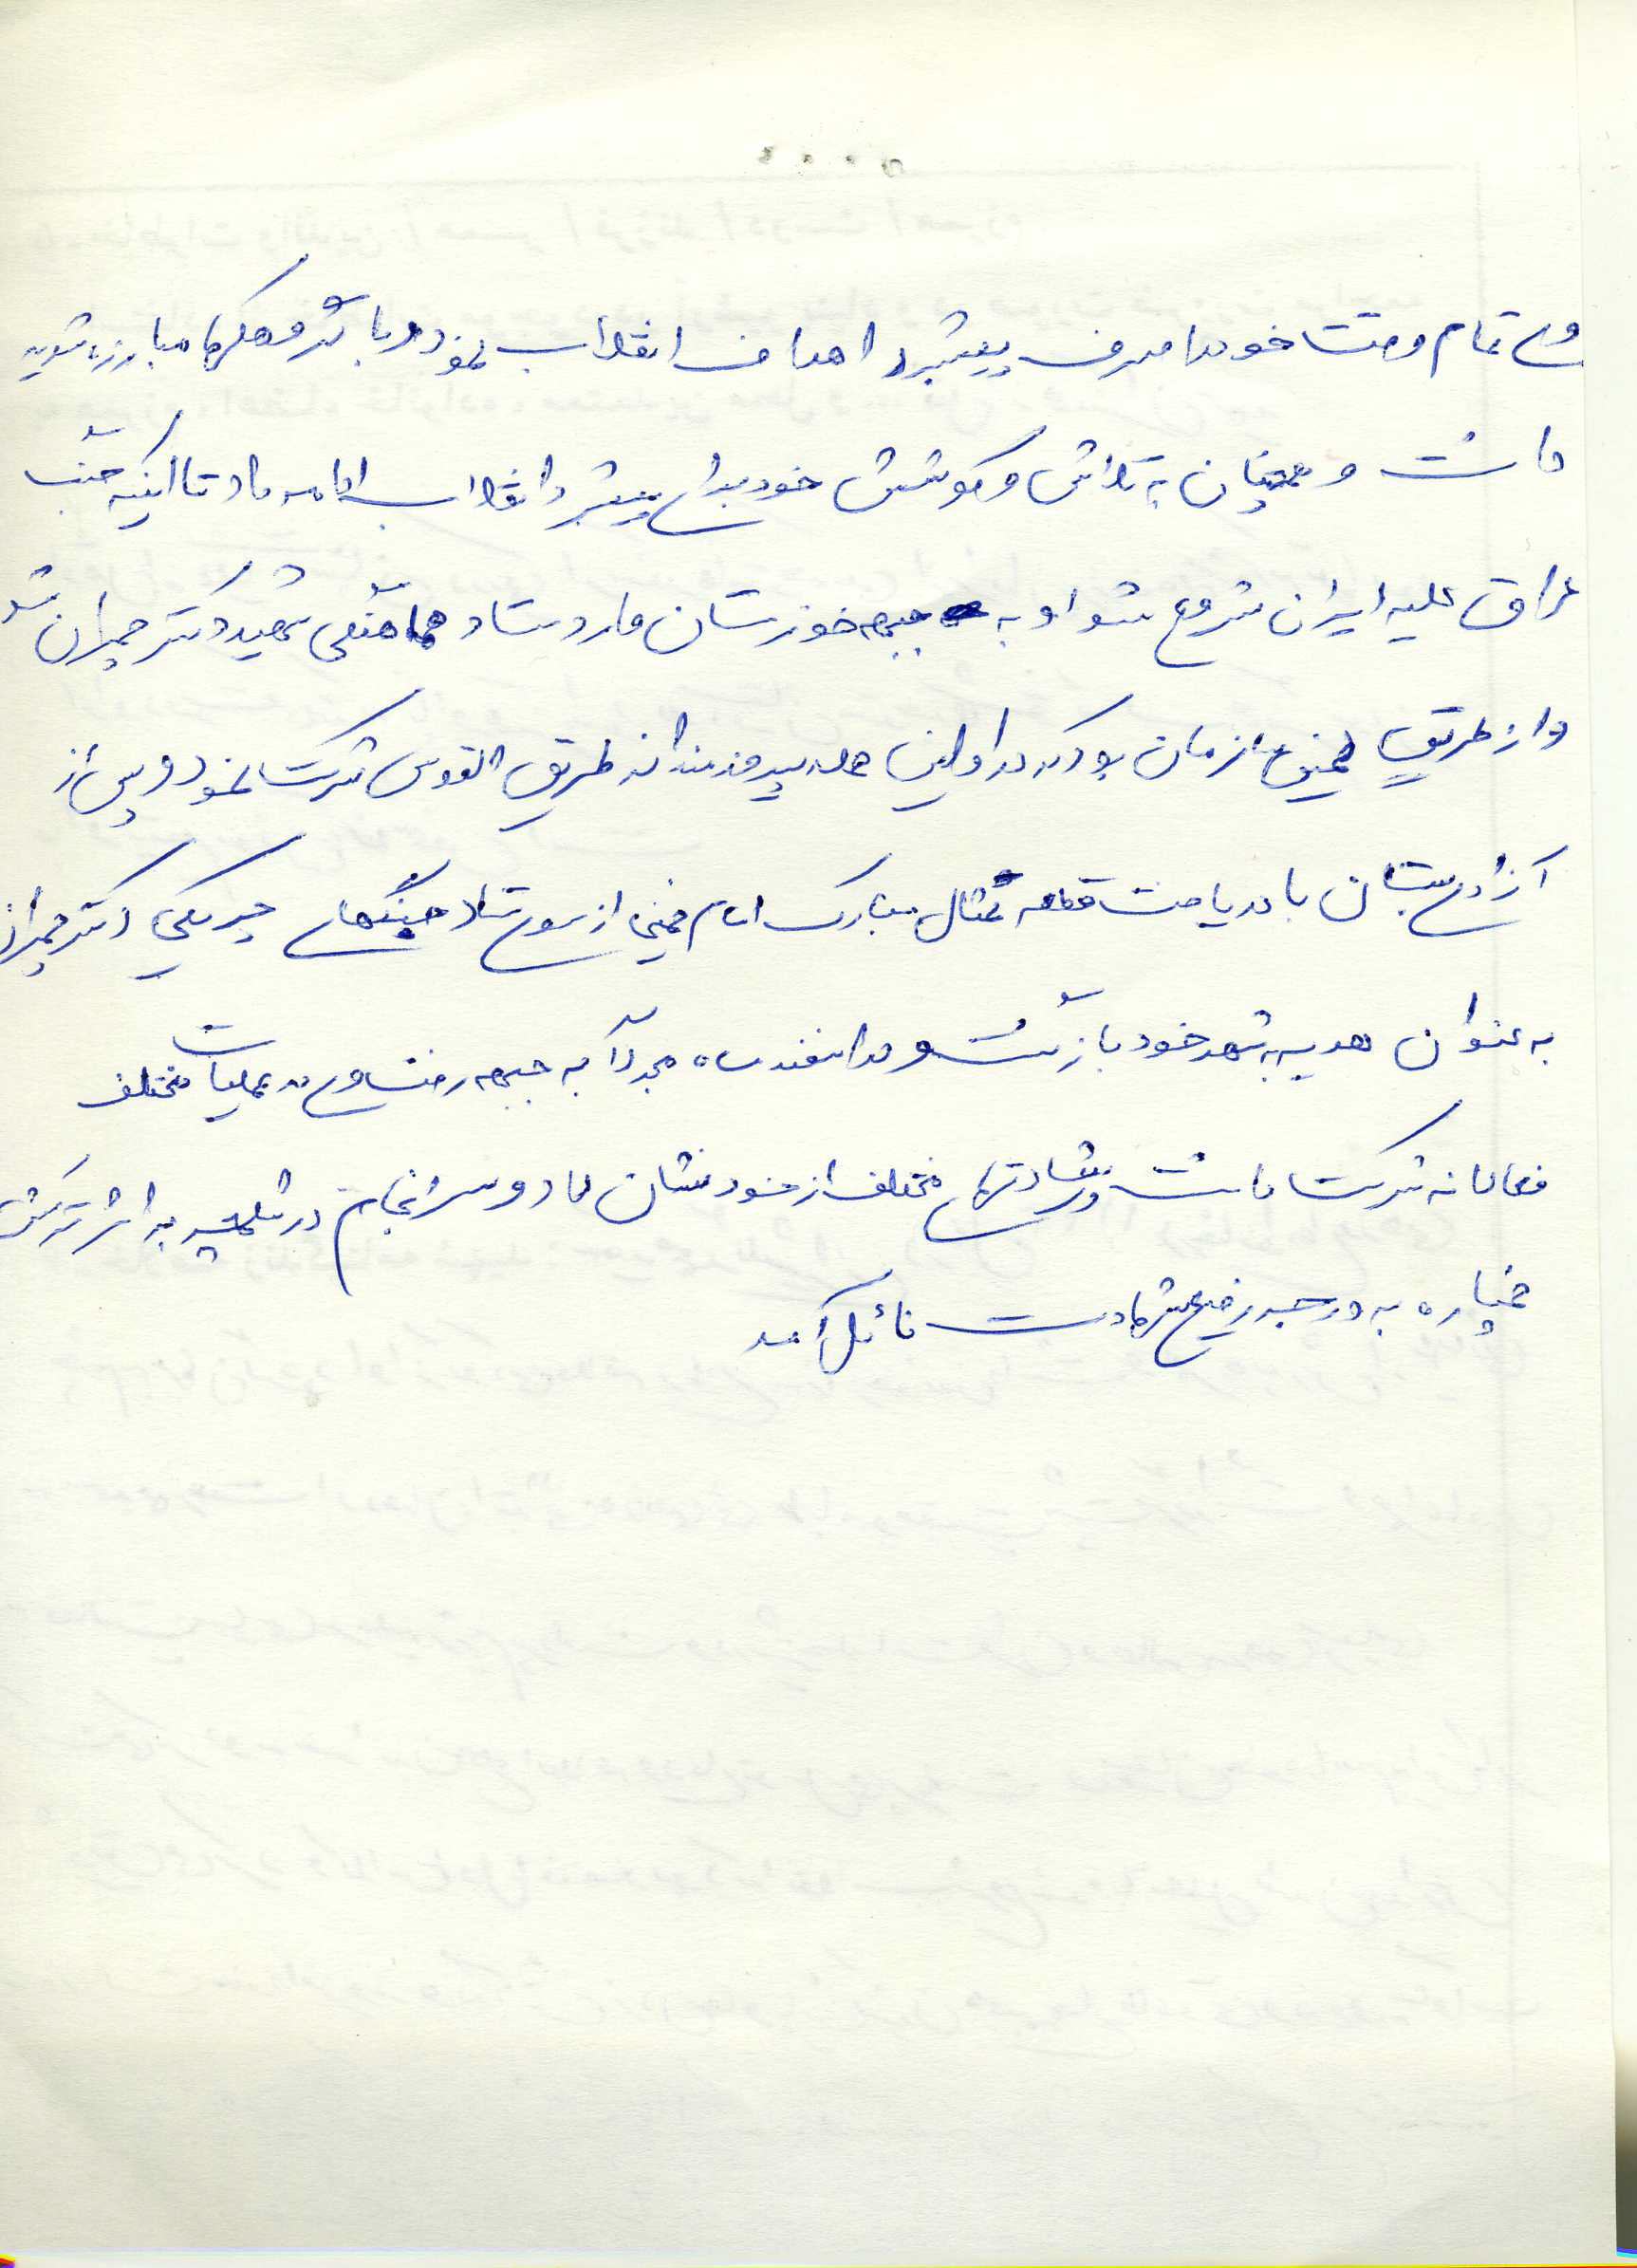 وی تمام وقت خود را صرف پیشبرد اهداف انقلاب نمود و با گروهکها مبارزه شدید
داشت و همچنان به تلاش و کوشش خود برای پیشبرد انقلاب ادامه داد تا اینکه جنگ
عراق علیه ایران شروع شد او به جبهه خوزستان وارد ستاد هماهنگی شهید دکتر چمران شد
و از طریق همین زمان بود که در اولین حمله پیروزمندانه طریق القدس شرکت نمود و پس از
آزادی بستان با دریافت قطعه تمثال مبارک امام خمینی از سوی ستاد جنگهای چریکی دکتر چمران
به عنوان هدیه به شهر خود بازگشت و در اسفند ماه مجدداً به جبهه رفت و وی در عملیات مختلف
فعالانه شرکت داشت و رشادتهای مختلف از خود نشان داد و سرانجام در شلمچه بر اثر ترکش
خمپاره به درجه رفیع شهادت نائل آمد